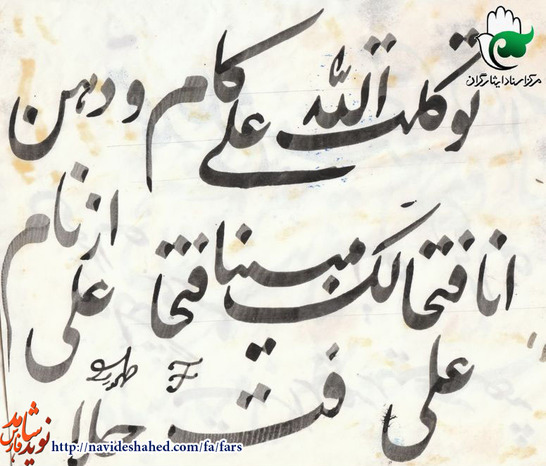 مرکز اسناد ایثارگران
توکلت علی الله کام و دهن
انا فتحا لک فتحا مبینا از نام
علی
علی
نوید شاهد فارس
http://navideshahed.com/fa/fars